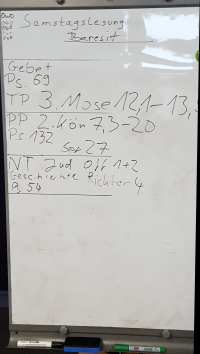 Samstagslesung
Baresit
Gebet
Ps. 69
TP 3. Mose 12,1-13,
PP 2. Kön 7,3-20
Ps 132
Spr 27
NT Jud Off 1+2
Geschichte Richter 4
Ps 54